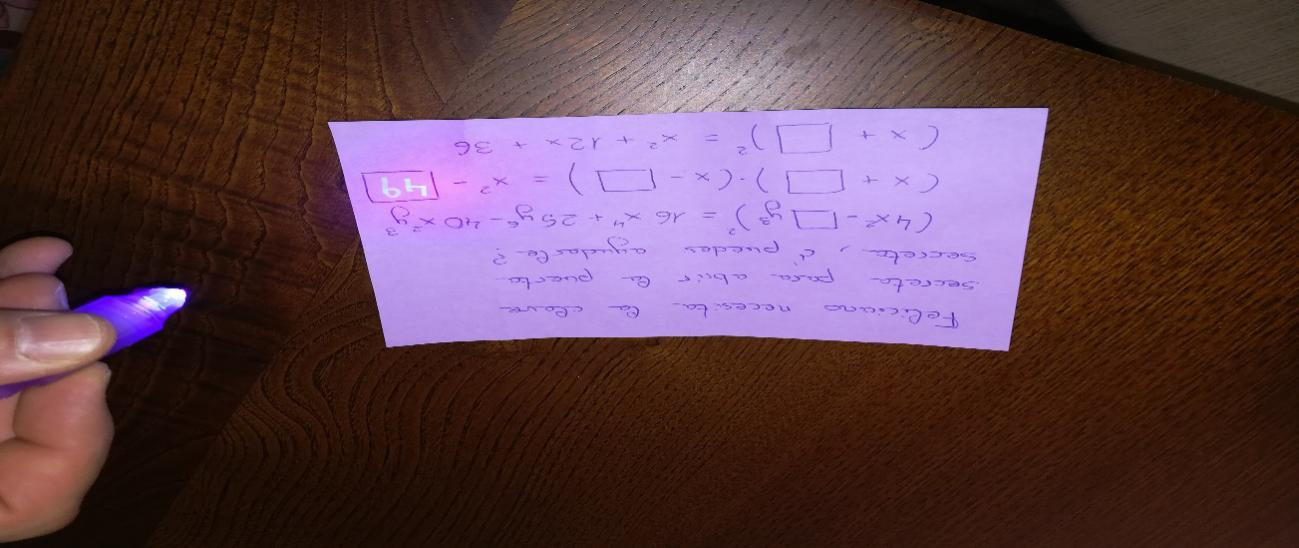 Feliciano necesita la clave
secreta para abrir la puerta
secreta, ¿ puedes ayudarle?
(4x² - □ y³)² = 16x⁴ + 25y⁶ - 40x²y³
(x + □)·(x - □) = x² - 49
(x + □)² = x² + 12x + 36